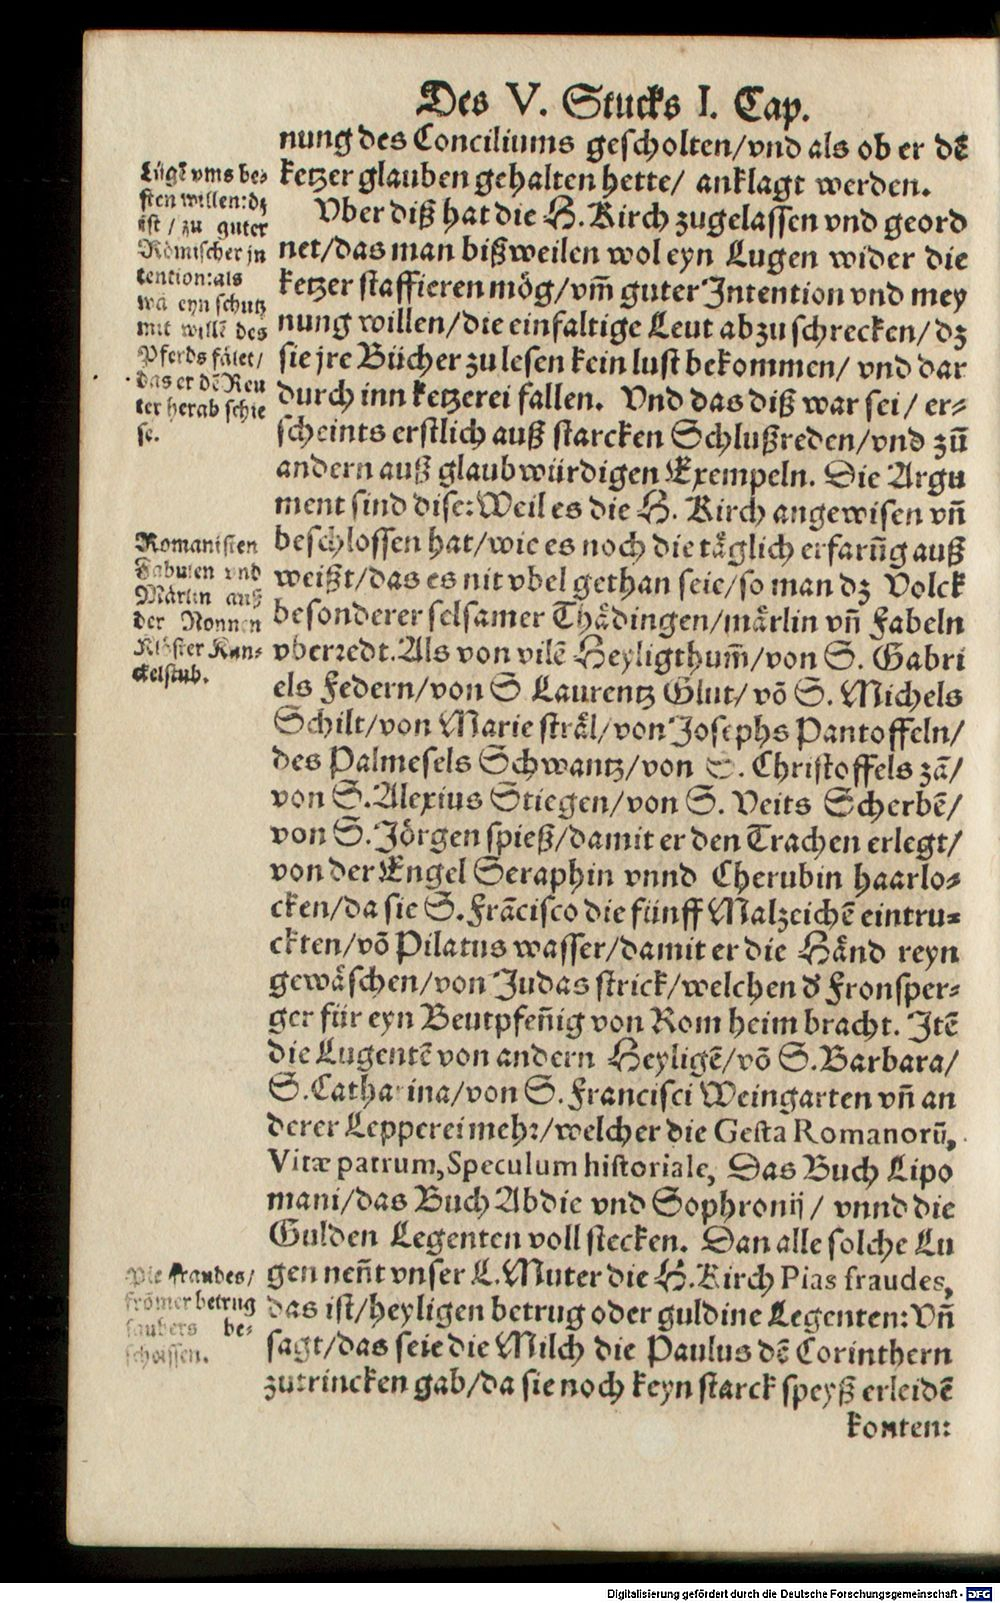 Des V. Stucks I. Cap.
nung des Conciliums gescholten/vnd als ob er dẽ
ketzer glauben gehalten hette/ anklagt werden.
Vber diß hat die H. Kirch zugelassen vnd geord
net/das man bißweilen wol eyn Lugen wider die
ketzer staffieren mög/vm̃ guter Intention vnd mey
nung willen/die einfaltige Leut abzuschrecken/dz
sie jre Bücher zu lesen kein lust bekommen/ vnd dar
durch inn ketzerei fallen. Vnd das diß war sei/ er-
scheints erstlich auß starcken Schlußreden/vnd zũ
andern auß glaubwürdigen Exempeln. Die Argu
ment sind dise: Weil es die H. Kirch angewisen vñ
beschlossen hat/wie es noch die täglich erfarũg auß
weißt/das es nit vbel gethan seie/so man dz Volck
besonderer selsamer Thädingen/märlin vñ Fabeln
vberredt. Als von vilẽ Heyligthum̃/von S. Gabri
els Federn/von S Laurentz Glut/ võ S. Michels
Schilt/von Marie sträl/von Josephs Pantoffeln/
des Palmesels Schwantz/von S. Christoffels zã/
von S. Alexius Stiegen/von S. Veits Scherbẽ/
von S. Jörgen spieß/damit er den Trachen erlegt/
von der Engel Seraphin vnnd Cherubin haarlo-
cken/da sie S. Frãcisco die fünff Malzeichẽ eintru-
ckten/võ Pilatus wasser/damit er die Händ reyn
gewäschen/von Judas strick/welchen d' Fronsper-
ger für eyn Beutpfeñig von Rom heim bracht. Itẽ
die Lugentẽ von andern Heyligẽ/võ S. Barbara/
S. Catharina/von S. Francisci Weingarten vñ an
derer Lepperei mehr/welcher die Gesta Romanorũ,
Vitæ patrum, Speculum historiale, Das Buch Lipo
mani/das Buch Abdie vnd Sophronij/ vnnd die
Gulden Legenten voll stecken. Dan alle solche Lu
gen neñt vnser L. Muter die H. Kirch Pias fraudes,
das ist/heyligen betrug oder guldine Legenten: Vñ
sagt/das seie die Milch die Paulus dẽ Corinthern
zutrincken gab/da sie noch keyn starck speyß erleidẽ
konten:
Lügẽ vms be-
sten willen: dz
ist / zu guter
Römischer in
tention: als
wã eyn schütz
mit willẽ des
Pferds fälet/
das er dẽ Reu
ter herab schie
se.
Romanisten
Fabulen vnd
Märlin auß
der Nonnen
Klöster Kun-
ckelstub.
Pie fraudes/
frõmer betrug
saubers be-
scheissen.
Digitalisierung gefördert durch die Deutsche Forschungsgemeinschaft - DFG